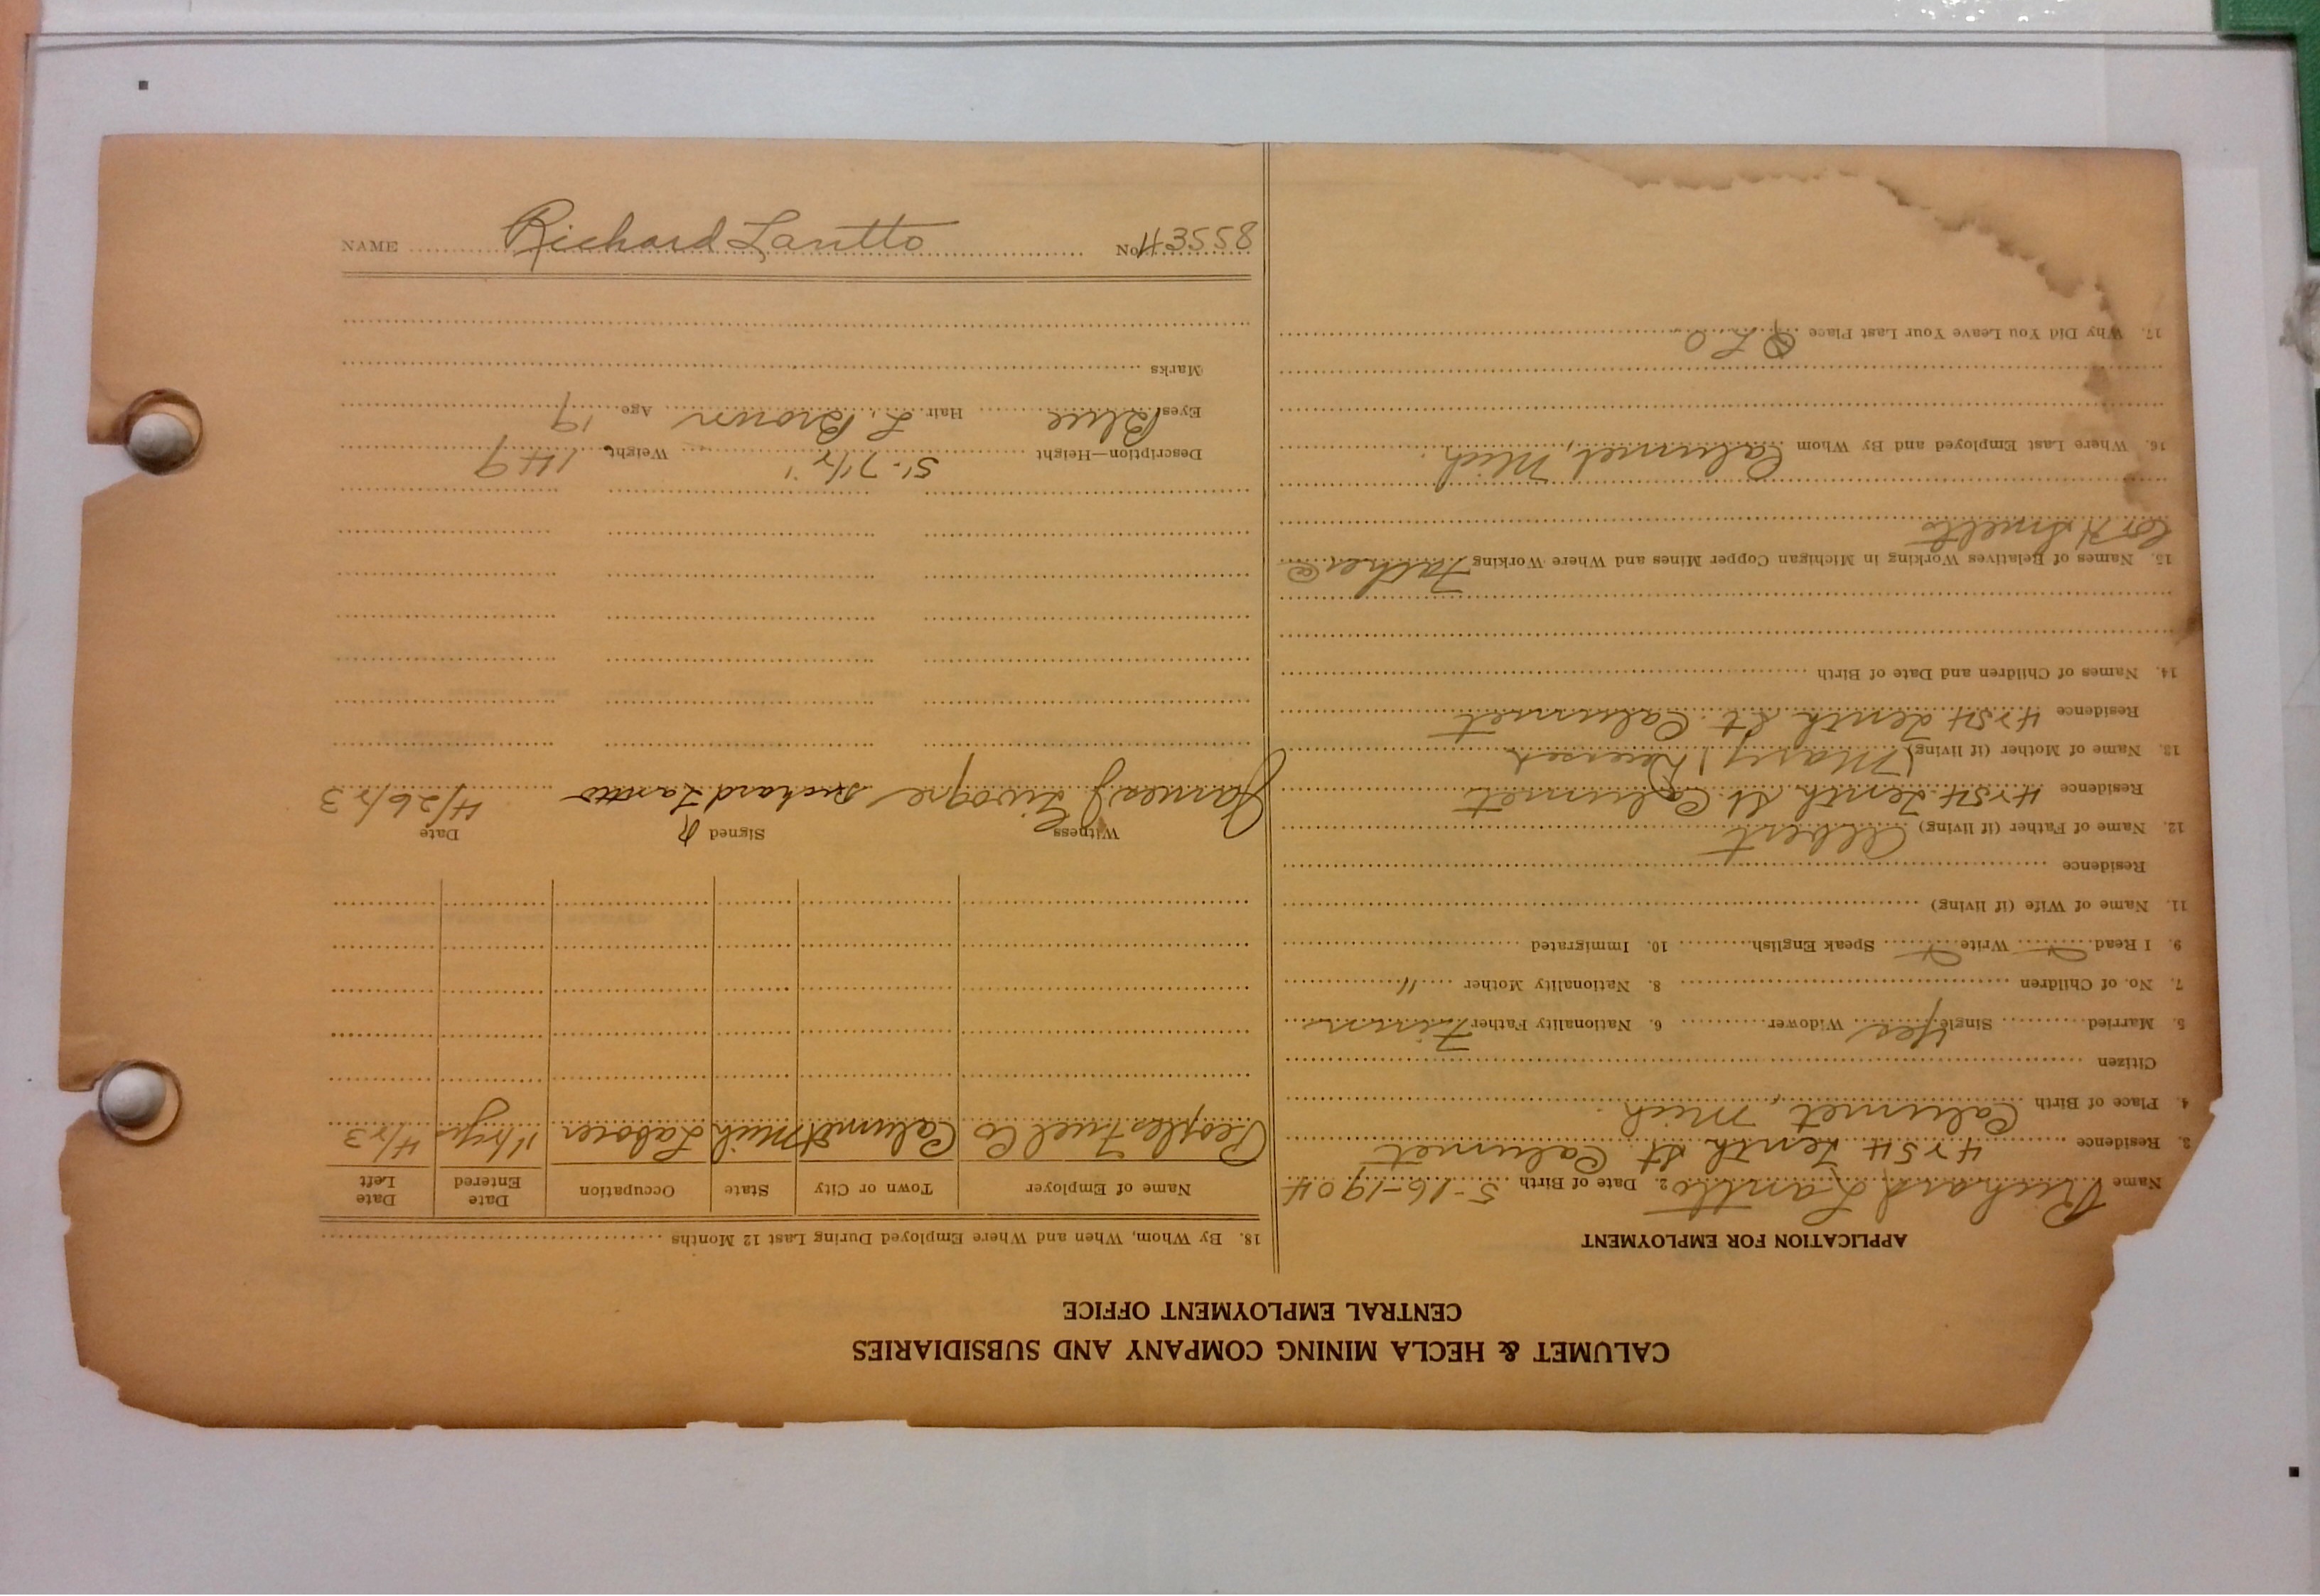 CALUMET & HECLA MINING COMPANY AND SUBSIDIARIES
CENTRAL EMPLOYMENT OFFICE
APPLICATION FOR EMPLOYMENT
Name Richard Lantto 2. Date of Birth 5-16-1904
3. Residence 4254 Tenth St Calumet
4. Place of Birth Calumet, Mich.
Citizen
5. Married Single Yes Widower 6. Nationality Father Finn
7. No. of Children 8. Nationality Mother "
9. I Read Write Speak English 10. Immigrated
11. Name of Wife (if living)
Residence
12. Name of Father (if living) Albert
Residence 4254 Tenth St Calumet
13. Name of Mother (if living) (Mary)
Residence 4254 Tenth St. Calumet
14. Names of Children and Date of Birth
15. Names of Relatives Working in Michigan Copper Mines and Where Working Father @
16. Where Last Employed and By Whom Calumet, Mich.
17. Why Did You Leave Your Last Place
18. By Whom, When and Where Employed During Last 12 Months
Name of Employer Town or City State Occupation Date Entered Date Left
Peoples Fuel Co Calumet Mich Laborer 4/23
Witness Signed Date
James J Richard Lantto 4/26/23
Description—Height 5'-7 1/2" Weight 149
Eyes Blue Hair L. Brown Age 19
Marks
NAME Richard Lantto No. H3558